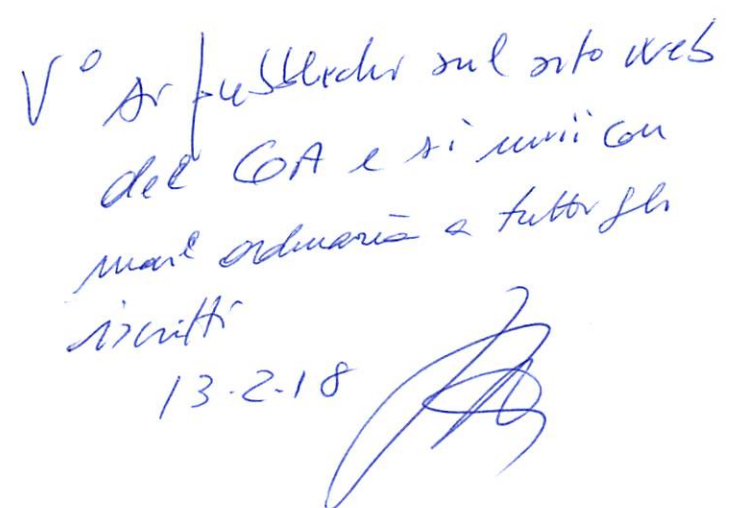 V° si pubblichi sul sito web
del COA e si invii con
mail ordinaria a tutti gli
iscritti
13-2-18